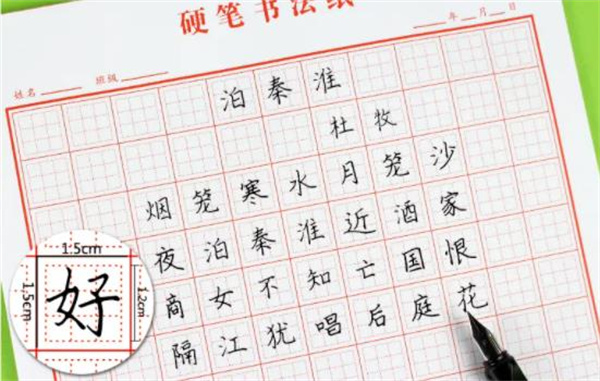 硬笔书法纸
姓名 班级 年 月 日
泊秦淮
杜牧
烟笼寒水月笼沙
夜泊秦淮近酒家
商女不知亡国恨
隔江犹唱后庭花
1.5cm
1.5cm
好
1.2cm